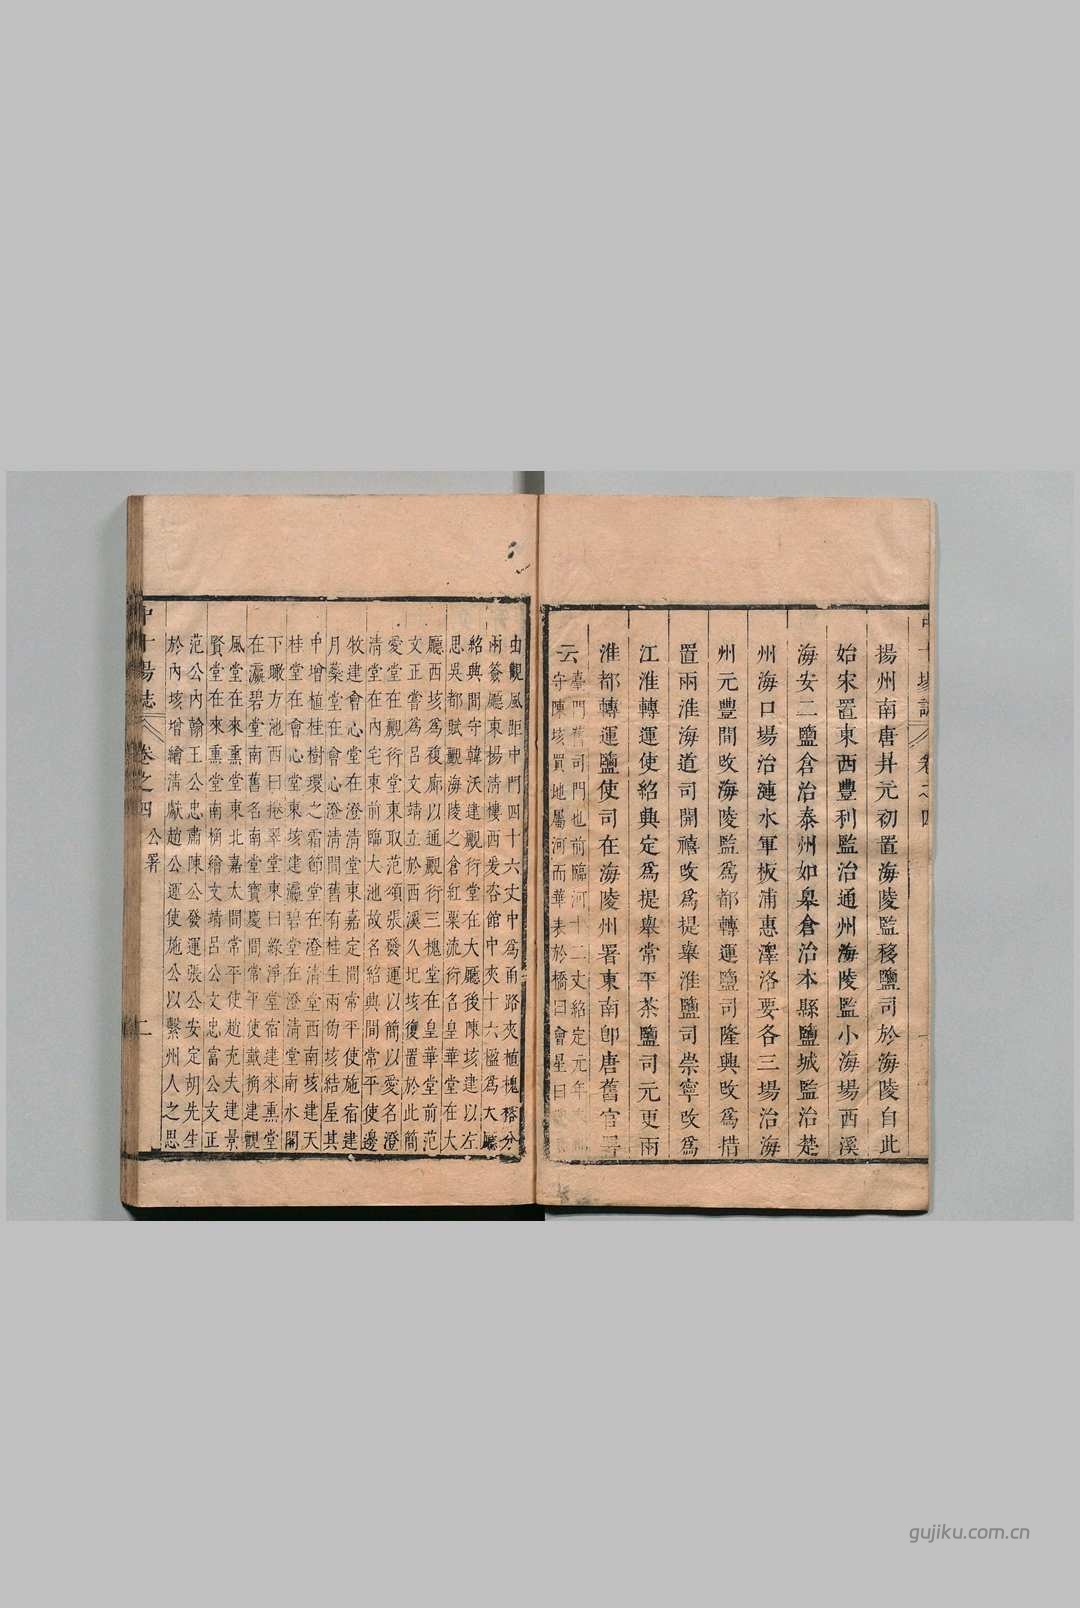 揚州南唐昇元初置海陵監移鹽司於海陵自此
始宋置東西豐利監治通州海陵監小海場西溪
海安二鹽倉治泰州如皋倉治本縣鹽城監治楚
州海口場治漣水軍板浦惠澤洛要各三場治海
州元豐間改海陵監為都轉運鹽司隆興改為措
置兩淮海道司開禧改為提舉淮鹽司崇寧改為
江淮轉運使紹興定為提舉常平茶鹽司元更兩
淮都轉運鹽使司在海陵州署東南即唐舊官
云
臺門舊司門也前臨河十二丈紹定元年
守陳垓買地屬河而華表於橋曰會星曰
由觀風距中門四十六丈中為甬路夾植槐榕分
兩簽廳東揚清樓西爰咨館中夾十六楹為大廳
紹興間守韓沃建觀衍堂在大廳後陳垓建以左
思吳都賦觀海陵之倉紅粟流衍名皇華堂在大
廳西垓為複廊以通觀衍三槐堂在皇華堂前范
文正嘗為呂文靖立於西溪久圯垓復置於此簡
愛堂在觀衍堂東取范頌張發運以簡以愛名澄
清堂在內宅東前臨大池故名紹興間常平使邊
牧建會心堂在澄清堂東嘉定間常平使施宿建
月藥堂在會心澄清間舊有桂生兩傍垓結屋其
中增植桂樹環之霜節堂在澄清堂西南垓建天
桂堂在會心堂東垓建瀛碧堂在澄清堂南水閣
下瞰方池西曰挹翠堂東曰綠淨堂宿建來熏堂
在瀛碧堂南舊名南堂寶慶間常平使戴桷建觀
風堂在來熏堂東北嘉太間常平使趙充夫建景
賢堂在來熏堂南桷繪文靖呂公文忠富公文正
范公內翰王公忠肅陳公發運張公安定胡先生
於內垓增繪清獻趙公運使施公以繫州人之思
中十場誌
卷之四
公署
二
gujiku.com.cn